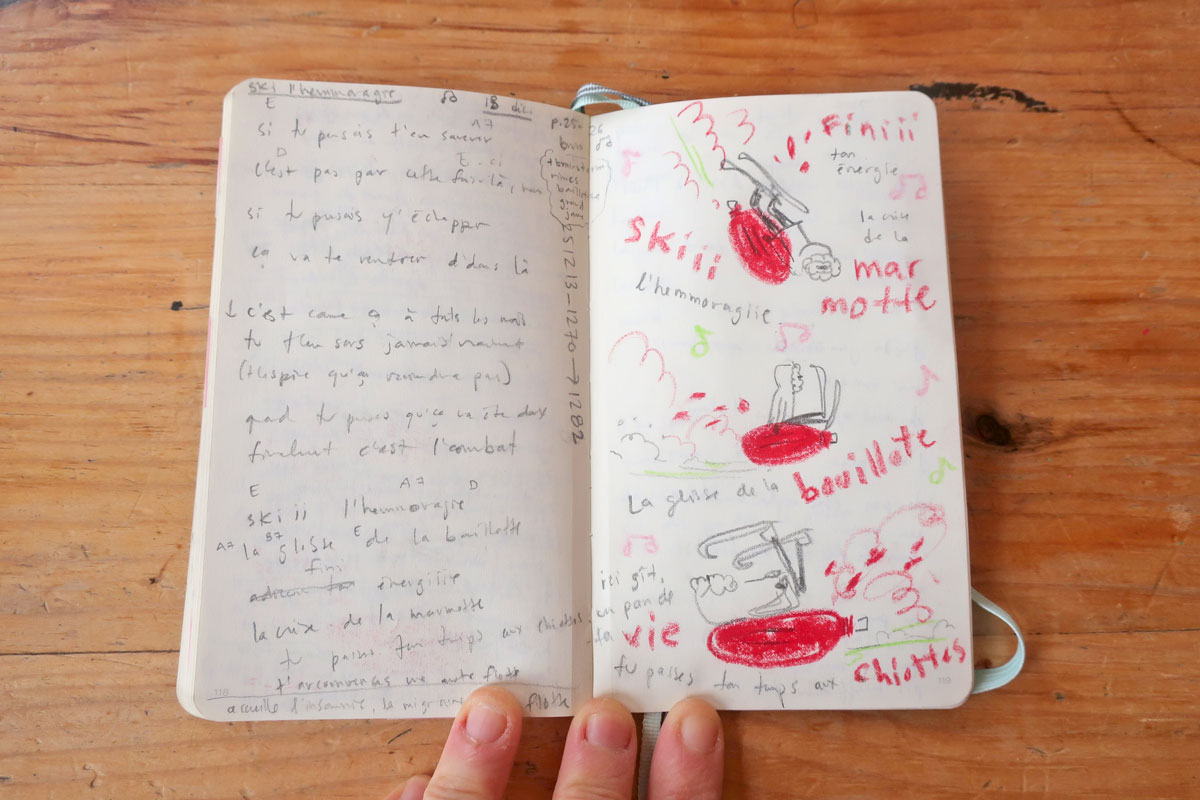 ski l'hemmoragie
18 dic.
E
A7
si tu pensais t'en sauver
D
E
c'est pas par cette fois là,
si tu pensais y'échapper
ça va te rentrer d'dans là
↓ c'est comme ça à tous les mois
tu t'en sors jamais vraiment
(t'espère qu'ça reviendra pas)
quand tu penses qu'ça va être doux
finalement c'est l'combat
E
A7 D
skiii l'hemmoragie
A7 B7 E
la glisse de la bouillotte
fini
énergiiie
la crise de la marmotte
tu passes ton temps aux chiottes
t'arcommences une autre flotte
118
accueille l'insomnie, la migraine
flotte
p.25-26
rimes
bouillotte
251213-1270→1282
Finiii
ton
énergie
Skiii
l'hemmoragiie
la crise
de la
mar
motte
La glisse de la bouillote
ici gît,
un pan de
ta vie
tu passes ton temps aux chiottes
119